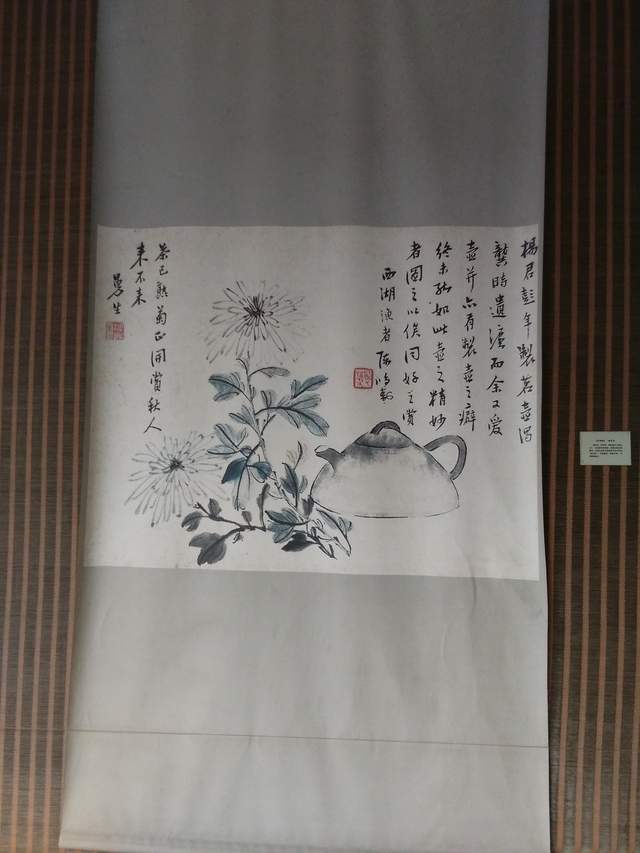 楊君彭年製茗壺得
龔時遺法而余又愛
壺并亦有製壺之癖
終未能如此壺之精妙
者圖之以俟同好之賞
西湖漁者陳鴻壽
茶已熟菊正開賞秋人
来不来
曼生